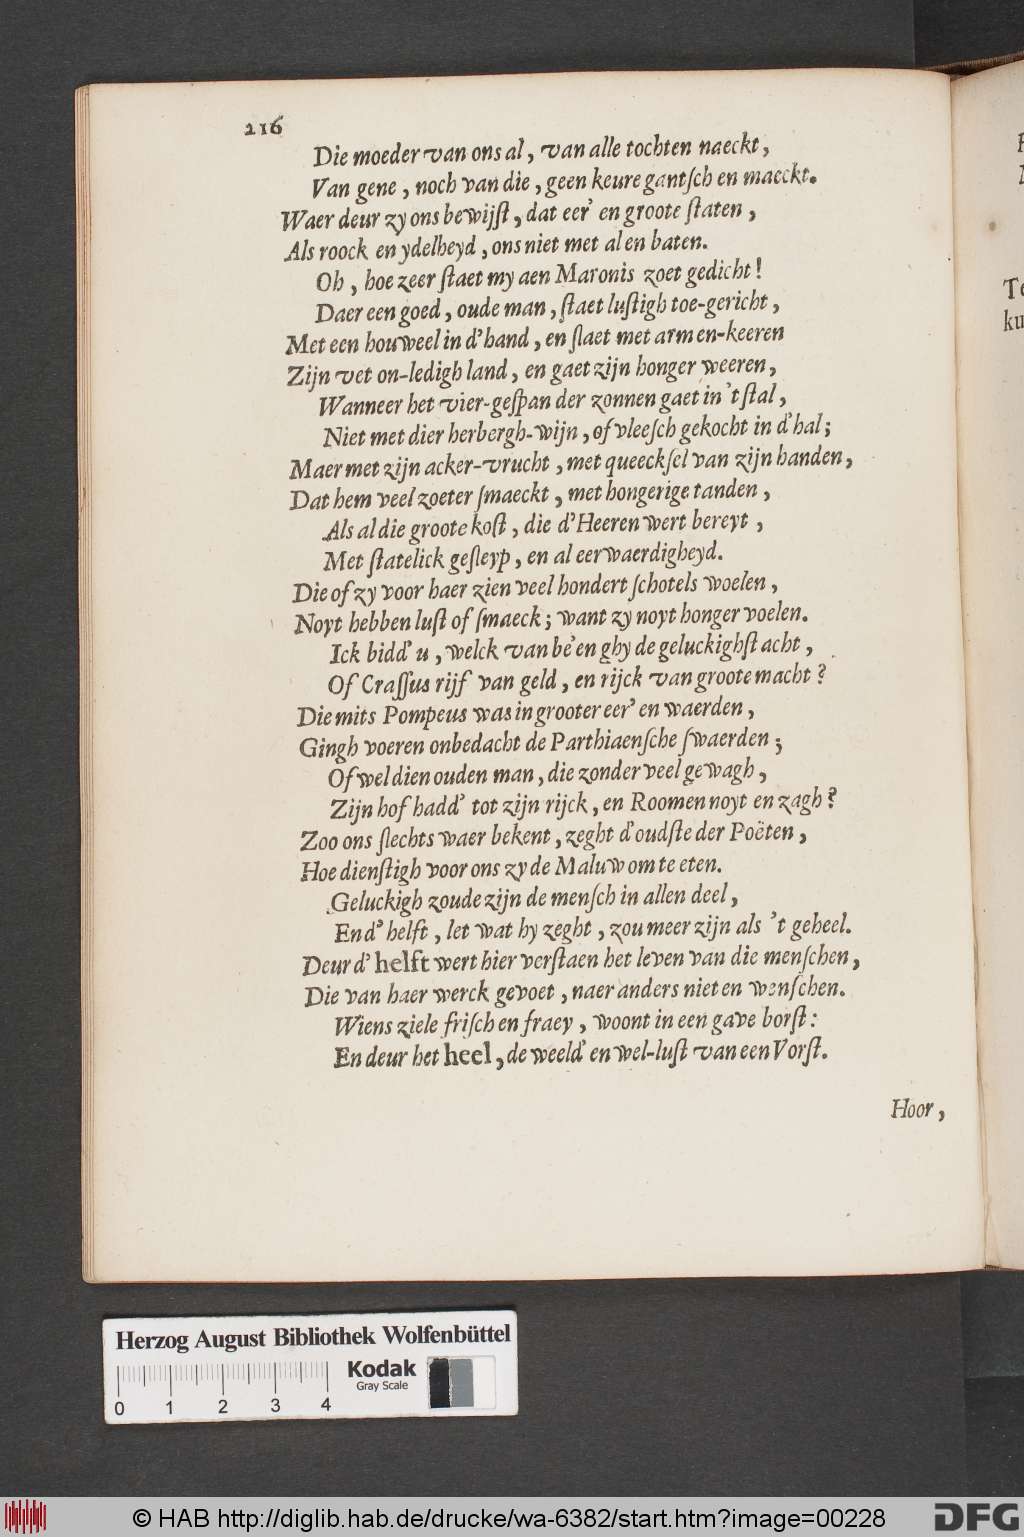 216
Die moeder van ons al, van alle tochten naeckt,
Van gene, noch van die, geen keure gantſch en maeckt.
Waer deur zy ons bewijſt, dat eer' en groote ſtaten,
Als roock en ydelheyd, ons niet met al en baten.
Oh, hoe zeer ſtaet my aen Maronis zoet gedicht!
Daer een goed, oude man, ſtaet luſtigh toe-gericht,
Met een houweel in d'hand, en ſlaet met arm en-keeren
Zijn vet on-ledigh land, en gaet zijn honger weeren,
Wanneer het vier-geſpan der zonnen gaet in 't ſtal,
Niet met dier herbergh-wijn, of vleeſch gekocht in d'hal;
Maer met zijn acker-vrucht, met queeckſel van zijn handen,
Dat hem veel zoeter ſmaeckt, met hongerige tanden,
Als al die groote koſt, die d'Heeren wert bereyt,
Met ſtatelick geſleyp, en al eerwaerdigheyd.
Die of zy voor haer zien veel hondert ſchotels woelen,
Noyt hebben luſt of ſmaeck; want zy noyt honger voelen.
Ick bidd' u, welck van bé'en ghy de geluckighſt acht,
Of Craſſus rijf van geld, en rijck van groote macht?
Die mits Pompeus was in grooter eer' en waerden,
Gingh voeren onbedacht de Parthiaenſche ſwaerden;
Of wel dien ouden man, die zonder veel gewagh,
Zijn hof hadd' tot zijn rijck, en Roomen noyt en zagh?
Zoo ons ſlechts waer bekent, zeght d'oudſte der Poëten,
Hoe dienſtigh voor ons zy de Maluw om te eten.
Geluckigh zoude zijn de menſch in allen deel,
En d'helft, let wat hy zeght, zou meer zijn als 't geheel.
Deur d'helft wert hier verſtaen het leven van die menſchen,
Die van haer werck gevoet, naer anders niet en wenſchen.
Wiens ziele friſch en fraey, woont in een gave borſt:
En deur het heel, de weeld' en wel-luſt van een Vorſt.
Hoor,
Te
ku
Herzog August Bibliothek Wolfenbüttel
Kodak
Gray Scale
0 1 2 3 4
© HAB http://diglib.hab.de/drucke/wa-6382/start.htm?image=00228
DFG